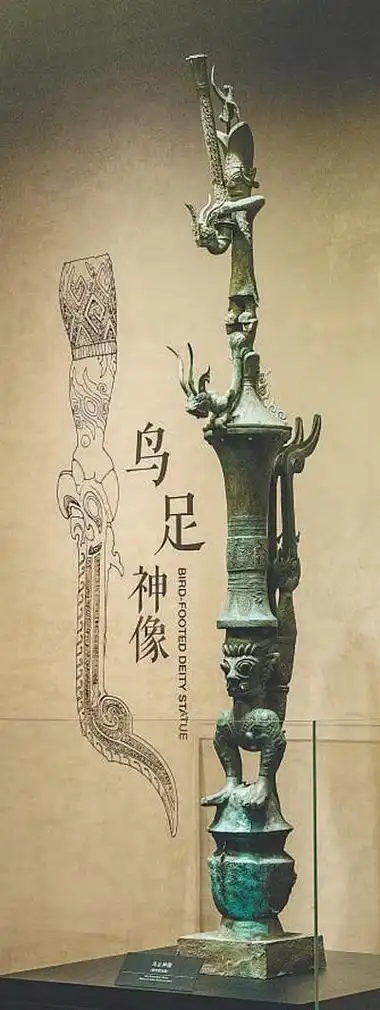 鸟足神像
BIRD-FOOTED DEITY STATUE
鸟足神像